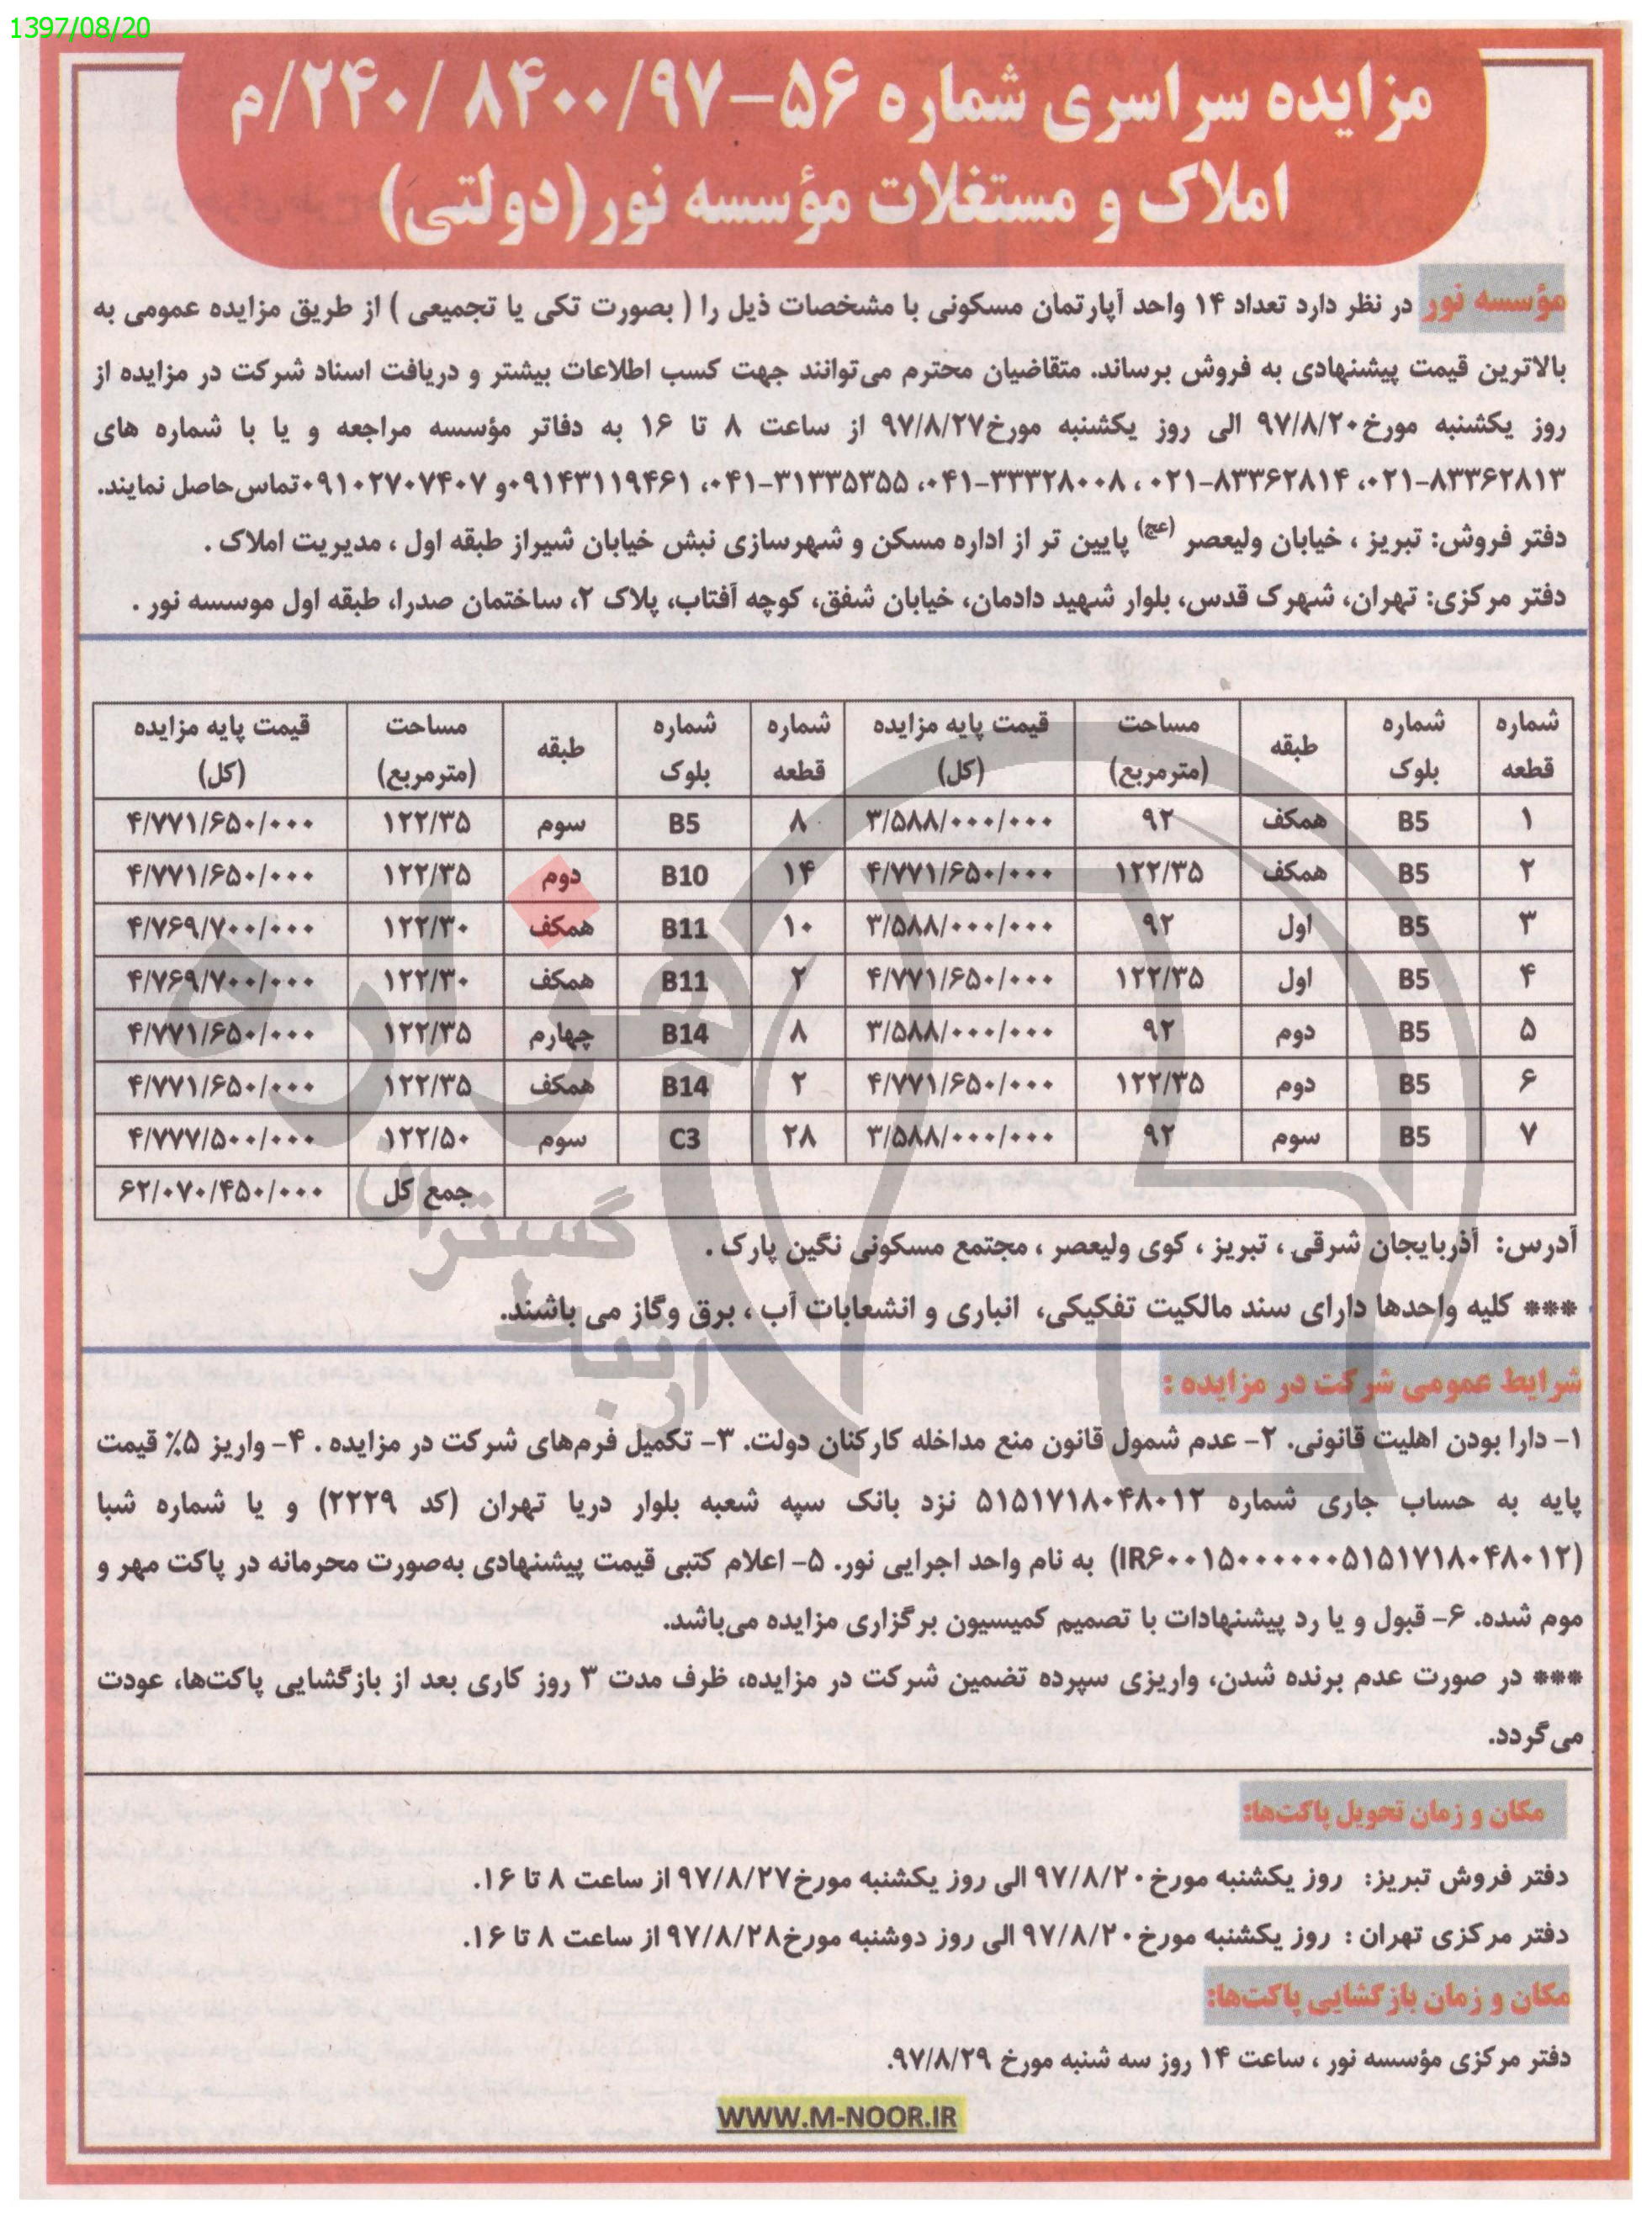 1397/08/20
مزایده سراسری شماره ۵۶–۸۴۰۰/۹۷ /۲۴۰/م
املاک و مستغلات مؤسسه نور(دولتی)
مؤسسه نور در نظر دارد تعداد ۱۴ واحد آپارتمان مسکونی با مشخصات ذیل را ( بصورت تکی یا تجمیعی ) از طریق مزایده عمومی به
بالاترین قیمت پیشنهادی به فروش برساند. متقاضیان محترم می‌توانند جهت کسب اطلاعات بیشتر و دریافت اسناد شرکت در مزایده از
روز یکشنبه مورخ۹۷/۸/۲۰ الی روز یکشنبه مورخ۹۷/۸/۲۷ از ساعت ۸ تا ۱۶ به دفاتر مؤسسه مراجعه و یا با شماره های
۰۲۱-۸۳۳۶۲۸۱۳، ۰۲۱-۸۳۳۶۲۸۱۴ ، ۰۴۱-۳۳۳۲۸۰۰۸، ۰۴۱-۳۱۳۳۵۳۵۵، ۰۹۱۴۳۱۱۹۴۶۱و ۰۹۱۰۲۷۰۷۴۰۷تماس حاصل نمایند.
دفتر فروش: تبریز ، خیابان ولیعصر (عج) پایین تر از اداره مسکن و شهرسازی نبش خیابان شیراز طبقه اول ، مدیریت املاک .
دفتر مرکزی: تهران، شهرک قدس، بلوار شهید دادمان، خیابان شفق، کوچه آفتاب، پلاک ۲، ساختمان صدرا، طبقه اول موسسه نور .
شماره قطعه شماره بلوک طبقه مساحت (مترمربع) قیمت پایه مزایده (کل) شماره قطعه شماره بلوک طبقه مساحت (مترمربع) قیمت پایه مزایده (کل)
۱ B5 همکف ۹۲ ۳/۵۸۸/۰۰۰/۰۰۰ ۸ B5 سوم ۱۲۲/۳۵ ۴/۷۷۱/۶۵۰/۰۰۰
۲ B5 همکف ۱۲۲/۳۵ ۴/۷۷۱/۶۵۰/۰۰۰ ۱۴ B10 دوم ۱۲۲/۳۵ ۴/۷۷۱/۶۵۰/۰۰۰
۳ B5 اول ۹۲ ۳/۵۸۸/۰۰۰/۰۰۰ ۱۰ B11 همکف ۱۲۲/۳۰ ۴/۷۶۹/۷۰۰/۰۰۰
۴ B5 اول ۱۲۲/۳۵ ۴/۷۷۱/۶۵۰/۰۰۰ ۲ B11 همکف ۱۲۲/۳۰ ۴/۷۶۹/۷۰۰/۰۰۰
۵ B5 دوم ۹۲ ۳/۵۸۸/۰۰۰/۰۰۰ ۸ B14 چهارم ۱۲۲/۳۵ ۴/۷۷۱/۶۵۰/۰۰۰
۶ B5 دوم ۱۲۲/۳۵ ۴/۷۷۱/۶۵۰/۰۰۰ ۲ B14 همکف ۱۲۲/۳۵ ۴/۷۷۱/۶۵۰/۰۰۰
۷ B5 سوم ۹۲ ۳/۵۸۸/۰۰۰/۰۰۰ ۲۸ C3 سوم ۱۲۲/۵۰ ۴/۷۷۷/۵۰۰/۰۰۰
جمع کل ۶۲/۰۷۰/۴۵۰/۰۰۰
آدرس: آذربایجان شرقی ، تبریز ، کوی ولیعصر ، مجتمع مسکونی نگین پارک .
*** کلیه واحدها دارای سند مالکیت تفکیکی، انباری و انشعابات آب ، برق وگاز می باشند.
شرایط عمومی شرکت در مزایده :
۱- دارا بودن اهلیت قانونی. ۲- عدم شمول قانون منع مداخله کارکنان دولت. ۳- تکمیل فرم‌های شرکت در مزایده . ۴- واریز ۵٪ قیمت
پایه به حساب جاری شماره ۵۱۵۱۷۱۸۰۴۸۰۱۲ نزد بانک سپه شعبه بلوار دریا تهران (کد ۲۲۲۹) و یا شماره شبا
(IR۶۰۰۱۵۰۰۰۰۰۰۵۱۵۱۷۱۸۰۴۸۰۱۲) به نام واحد اجرایی نور. ۵- اعلام کتبی قیمت پیشنهادی به‌صورت محرمانه در پاکت مهر و
موم شده. ۶- قبول و یا رد پیشنهادات با تصمیم کمیسیون برگزاری مزایده می‌باشد.
*** در صورت عدم برنده شدن، واریزی سپرده تضمین شرکت در مزایده، ظرف مدت ۳ روز کاری بعد از بازگشایی پاکت‌ها، عودت
می‌گردد.
مکان و زمان تحویل پاکت‌ها:
دفتر فروش تبریز: روز یکشنبه مورخ۹۷/۸/۲۰ الی روز یکشنبه مورخ۹۷/۸/۲۷ از ساعت ۸ تا ۱۶.
دفتر مرکزی تهران : روز یکشنبه مورخ۹۷/۸/۲۰ الی روز دوشنبه مورخ۹۷/۸/۲۸ از ساعت ۸ تا ۱۶.
مکان و زمان بازگشایی پاکت‌ها:
دفتر مرکزی مؤسسه نور ، ساعت ۱۴ روز سه شنبه مورخ ۹۷/۸/۲۹.
WWW.M-NOOR.IR